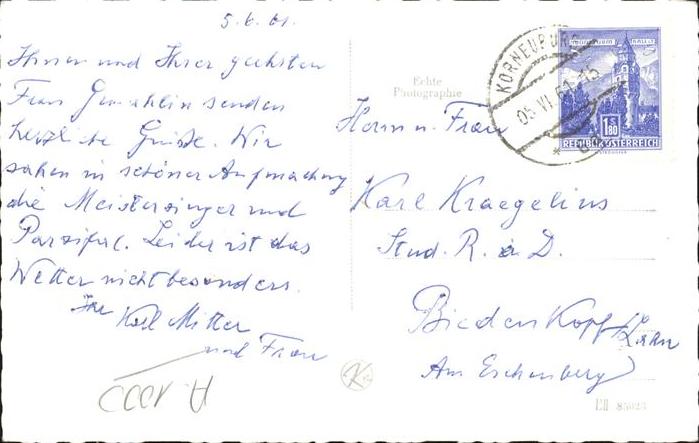 5.6.61.
Ihnen und Ihrer geehrten
Frau Gemahlin senden
herzliche Grüße. Wir
sahen in schöner Aufmachung
die Meistersinger und
Parsifal. Leider ist das
Wetter nicht besonders.
Ihr Karl Mitter
und Frau
Echte
Photographie
KORNEUBURG
05.VI.61-15
1S80
REPUBLIK ÖSTERREICH
Herrn u. Frau
Karl Kraegelius
Stud. R. a. D.
Biedenkopf/Lahn
Am Eschenberg